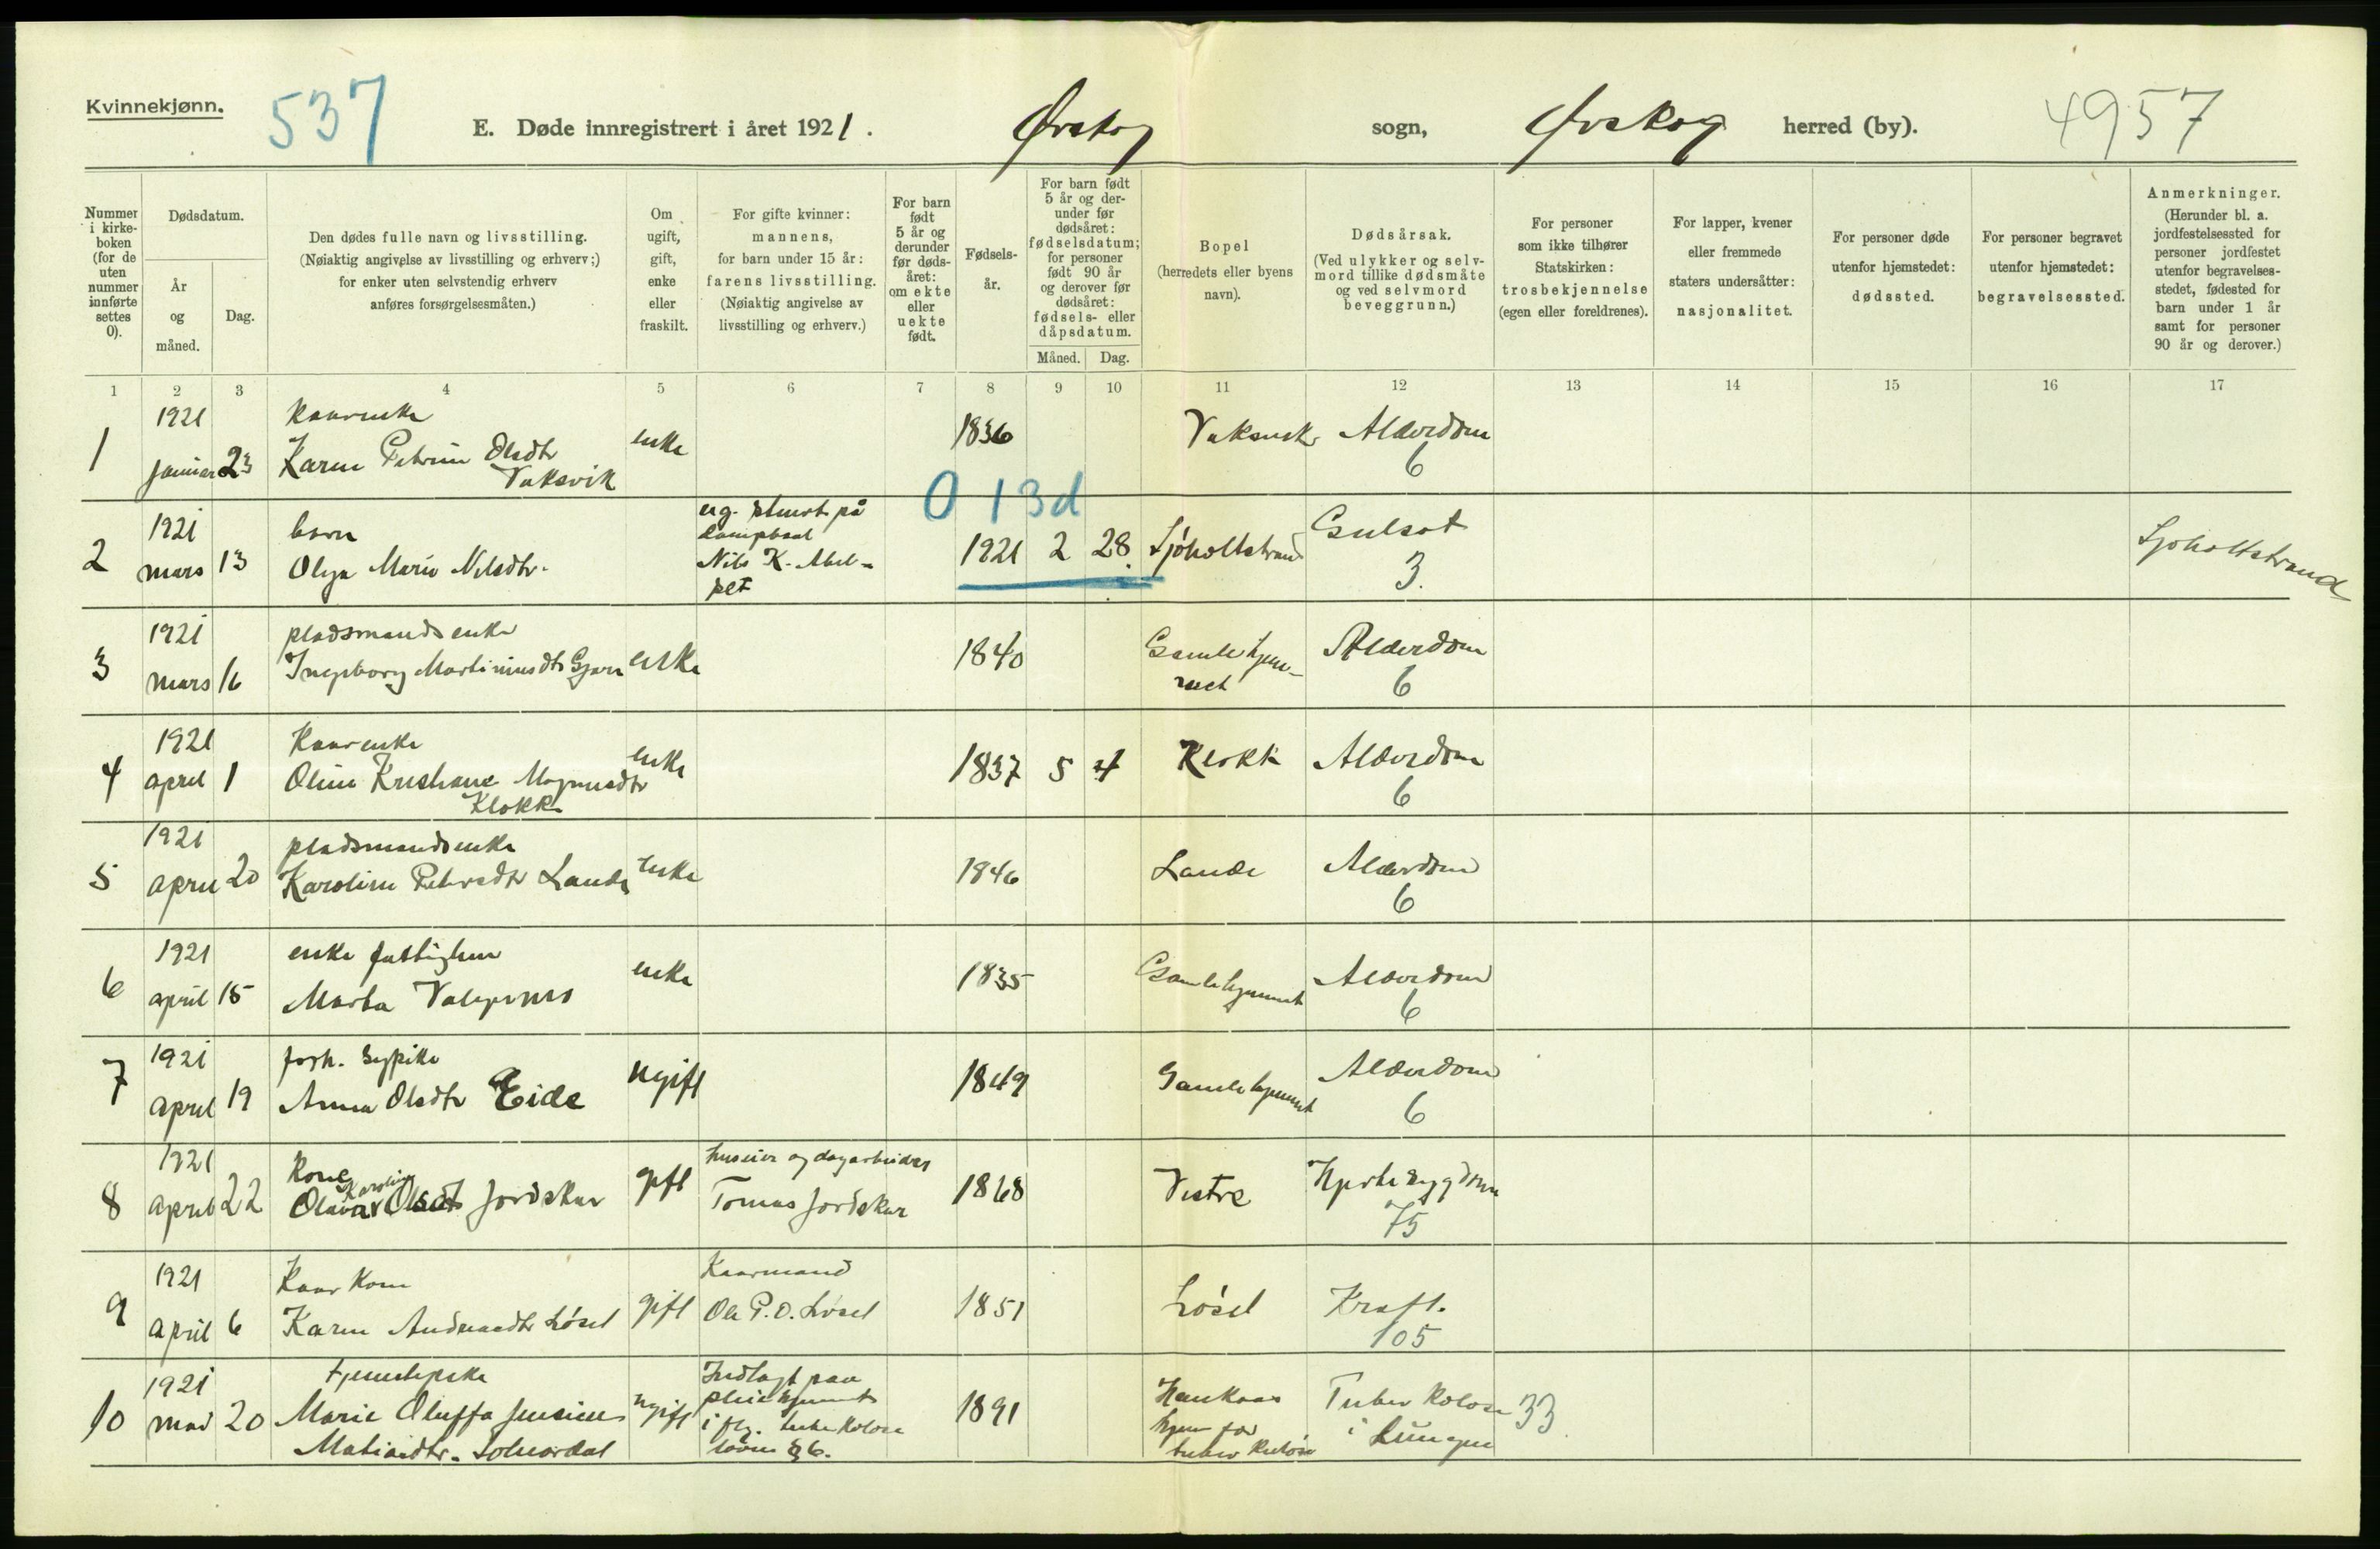 Kvinnekjønn.
537
E. Døde innregistrert i året 1921.
Ørskog sogn,
Ørskog herred (by).
4957
Nummer i kirke-boken (for de uten nummer innførte settes 0).
Dødsdatum.
År og måned.
Dag.
Den dødes fulle navn og livsstilling.
(Nøiaktig angivelse av livsstilling og erhverv;)
for enker uten selvstendig erhverv
anføres forsørgelsesmåten.)
Om ugift, gift, enke eller fraskilt.
For gifte kvinner:
mannens,
for barn under 15 år:
farens livsstilling.
(Nøiaktig angivelse av
livsstilling og erhverv.)
For barn født 5 år og derunder før døds-året: om ekte eller uekte født.
Fødsels-år.
For barn født 5 år og der-under før dødsåret: fødselsdatum; for personer født 90 år og derover før dødsåret: fødsels- eller dåpsdatum.
Måned. Dag.
Bopel
(herredets eller byens
navn).
Dødsårsak.
(Ved ulykker og selv-
mord tillike dødsmåte
og ved selvmord
beveggrunn.)
For personer
som ikke tilhører
Statskirken:
trosbekjennelse
(egen eller foreldrenes).
For lapper, kvener
eller fremmede
staters undersåtter:
nasjonalitet.
For personer døde
utenfor hjemstedet:
dødssted.
For personer begravet
utenfor hjemstedet:
begravelsessted.
Anmerkninger.
(Herunder bl. a.
jordfestelsessted for
personer jordfestet
utenfor begravelses-
stedet, fødested for
barn under 1 år
samt for personer
90 år og derover.)
1 2 3 4 5 6 7 8 9 10 11 12 13 14 15 16 17
1921 Kaarenke
1 januar 23 Karen Petrine Olsdtr enke 1836 Alderdom
Vaksvik 6
0 13d
1921 barn
2 mars 13 Olga Marie Nilsdtr. Nils K. 1921 2 28. Sjøholtstrand Gulsot Sjøholtstrand
3.
1921 pladsmandsenke
3 mars 16 Ingeborg Martinusdtr enke 1840 Gamlehjem- Alderdom
met 6
1921 Kaarenke
4 april 1 Oline Kristiane Magnusdtr enke 1837 5 4 Klokk Alderdom
Klokk 6
1921 pladsmandsenke
5 april 20 Karoline Petersdtr Lande enke 1846 Lande Alderdom
6
1921 enke fattighem
6 april 15 Marta enke 1835 Gamlehjemmet Alderdom
6
1921 forh. sypike
7 april 19 Anna Olsdtr Eide ugift 1849 Gamlehjemmet Alderdom
6
1921 Kone huseier og dagarbeider
8 april 22 Karoline Olsdtr Jordskar gift Tomas Jordskar 1868 Vestre Hjertesygdom
75
1921 Kaarkone Kaarmand
9 april 6 Karen Andreasdtr Løset gift Ole P. O. Løset 1851 Løset Kræft.
105
1921 tjenestepike Indlagt paa
10 mai 20 Marie Oluffa Jensine ugift pleiehjemmet 1891 Tuberkolose 33
Matiasdtr. Solnørdal i flg. tuberkolose hjem for i Lungene
loven § 6. tuberkuløse